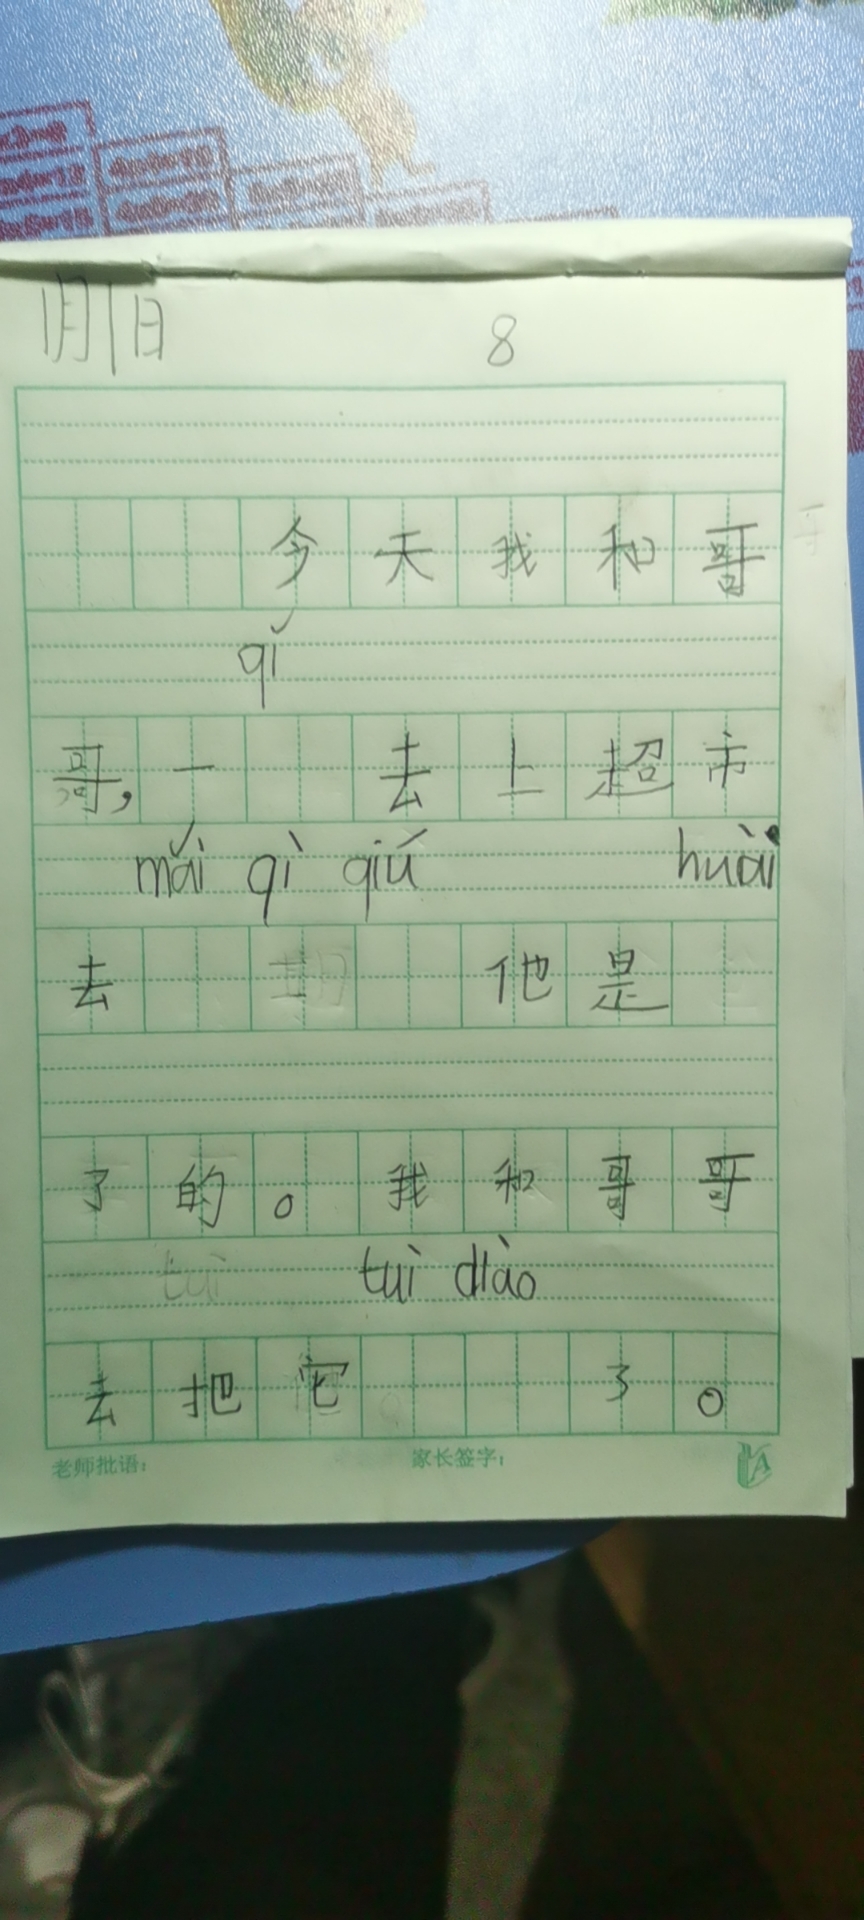 1月1日 8
今天我和哥
qǐ
哥，一 去上超市
mǎi qì qiú huài
去 他是
了的。我和哥哥
tuì diào
去把它 了。
老师批语： 家长签字：